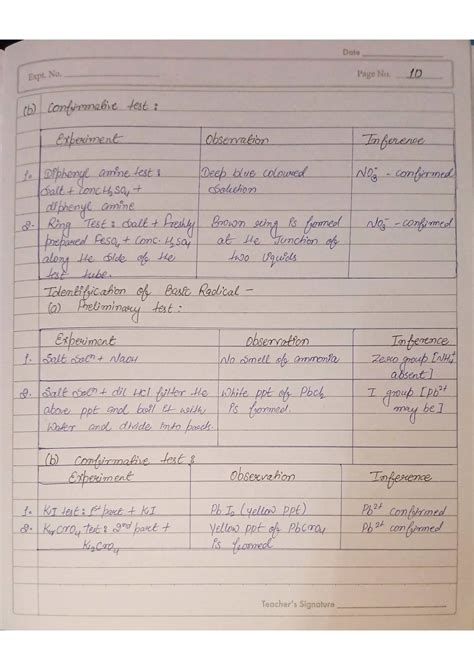 Date
Expt. No.
Page No. 10
(b) Confirmative test :
Experiment Observation Inference
1. Diphenyl amine test : Deep blue coloured NO3⁻ - confirmed
Salt + conc H2SO4 + solution
diphenyl amine
2. Ring Test : Salt + Freshly Brown ring is formed NO3⁻ - confirmed
prepared FeSO4 + Conc. H2SO4 at the Junction of
along the side of the two liquids
test tube.
Identification of Basic Radical -
(a) Preliminary test :
Experiment Observation Inference
1. Salt Solⁿ + NaOH No smell of ammonia Zero group [NH4⁺
absent]
2. Salt Solⁿ + dil HCl filter the White ppt of PbCl2 I group [Pb²⁺
above ppt and boil it with is formed. may be]
water and divide into
(b) Confirmative test :
Experiment Observation Inference
1. KI test : 1st part + KI PbI2 (yellow ppt) Pb²⁺ confirmed
2. K2CrO4 Test : 2nd part + Yellow ppt of PbCrO4 Pb²⁺ confirmed
K2CrO4 is formed
Teacher's Signature